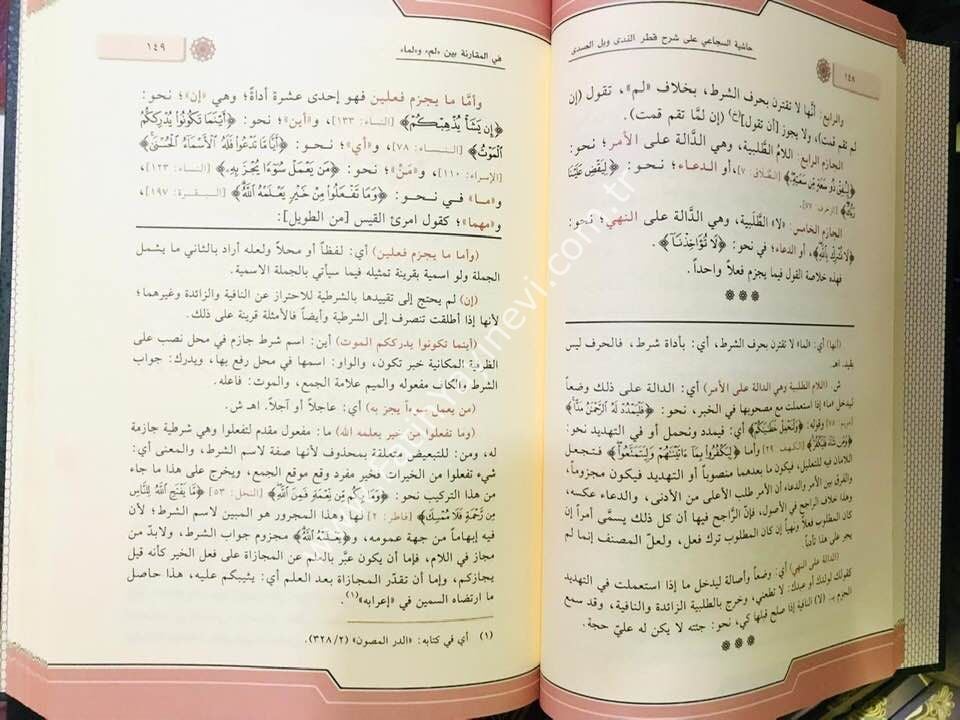 حاشية السجاعي على شرح قطر الندى وبل الصدى
١٤٨
والرابع: أنَّها لا تقترن بحرف الشرط، بخلاف «لم»، تقول (إن
لم تقم قمت)، ولا يجوز [أن تقول](خ) (إن لمَّا تقم قمت).
الجازم الرابع: اللامُ الطَّلبية، وهي الدالة على الأمر؛ نحو:
﴿لِيُنفِقْ ذُو سَعَةٍ مِّن سَعَتِهِ﴾ [الطلاق: ٧]، أو الدعاء؛ نحو: ﴿لِيَقْضِ عَلَيْنَا
رَبُّكَ﴾ [الزخرف: ٧٧].
الجازم الخامس: «لا» الطَّلَبية، وهي الدالة على النهي؛ نحو:
﴿لَا تُشْرِكْ بِاللَّهِ﴾، أو الدعاء؛ في نحو: ﴿لَا تُؤَاخِذْنَا﴾.
فهذه خلاصة القول فيما يجزم فعلاً واحداً.
(أنها) أي: «لما» لا تقترن بحرف الشرط، أي: بأداة شرط، فالحرف ليس
بقيد. اهـ
ش. (اللام الطلبية وهي الدالة على الأمر) أي: الدالة على ذلك وضعاً
ليدخل «ما» إذا استعملت مع مصحوبها في الخبر، نحو: ﴿فَلْيَمْدُدْ لَهُ الرَّحْمَنُ مَدًّا﴾
[مريم: ٧٥] وقوله: ﴿وَلْنَحْمِلْ خَطَايَاكُمْ﴾ أي: فيمدد ونحمل أو في التهديد نحو:
﴿وَمَن شَاءَ فَلْيَكْفُرْ﴾ [الكهف: ٢٩] وأما ﴿لِيَكْفُرُوا بِمَا آتَيْنَاهُمْ وَلِيَتَمَتَّعُوا﴾ فتجعل
اللامان فيه للتعليل، فيكون ما بعدهما منصوباً أو التهديد فيكون مجزوماً،
والفرق بين الأمر والدعاء أن الأمر طلب الأعلى من الأدنى، والدعاء عكسه،
وهذا خلاف الراجح في الأصول، فإنَّ الرَّاجح فيها أن كل ذلك يسمَّى أمراً إن
كان المطلوب فعلاً ونهياً إن كان المطلوب ترك فعل، ولعلَّ المصنف إنما لم
يجر على هذا تأدباً.
(الدالة على النهي) أي: وضعاً وأصالة ليدخل ما إذا استعملت في التهديد
كقولك لولدك أو عبدك: لا تطعني، وخرج بالطلبية الزائدة والنافية، وقد سمع
الجزم بـ. (لا) النافية إذا صلح قبلها كي، نحو: جئته لا يكن له عليّ حجة.
في المقارنة بين «لم» و«لما»
١٤٩
وأمَّا ما يجزم فعلين فهو إحدى عشرة أداةً؛ وهي «إن»؛ نحو:
﴿إِن يَشَأْ يُذْهِبْكُمْ﴾ [النساء: ١٣٣]، و«أين»؛ نحو: ﴿أَيْنَمَا تَكُونُوا يُدْرِككُّمُ
الْمَوْتُ﴾ [النساء: ٧٨]، و«أي» نحو: ﴿أَيًّا مَا تَدْعُوا فَلَهُ الْأَسْمَاءُ الْحُسْنَى﴾
[الإسراء: ١١٠]، و«مَنْ»؛ نحو: ﴿مَن يَعْمَلْ سُوءًا يُجْزَ بِهِ﴾ [النساء: ١٢٣]،
و«ما» في نحو: ﴿وَمَا تَفْعَلُوا مِنْ خَيْرٍ يَعْلَمْهُ اللَّهُ﴾ [البقرة: ١٩٧]،
و«مهما»؛ كقول امرئ القيس [من الطويل]:
(وأما ما يجزم فعلين) أي: لفظاً أو محلاً ولعله أراد بالثاني ما يشمل
الجملة ولو اسمية بقرينة تمثيله فيما سيأتي بالجملة الاسمية.
(إن) لم يحتج إلى تقييدها بالشرطية للاحتراز عن النافية والزائدة وغيرهما؛
لأنها إذا أطلقت تنصرف إلى الشرطية وأيضاً فالأمثلة قرينة على ذلك.
(أينما تكونوا يدرككم الموت) أين: اسم شرط جازم في محل نصب على
الظرفية المكانية خبر تكون، والواو: اسمها في محل رفع بها، ويدرك: جواب
الشرط والكاف مفعوله والميم علامة الجمع، والموت: فاعله.
(من يعمل سوءاً يجز به) أي: عاجلاً أو آجلاً. اهـ ش.
(وما تفعلوا من خير يعلمه الله) ما: مفعول مقدم لتفعلوا وهي شرطية جازمة
له، ومن: للتبعيض متعلقة بمحذوف لأنها صفة لاسم الشرط، والمعنى أي:
شيء تفعلوا من الخيرات فخير مفرد وقع موقع الجمع، ويخرج على هذا ما جاء
من هذا التركيب نحو: ﴿وَمَا بِكُم مِّن نِّعْمَةٍ فَمِنَ اللَّهِ﴾ [النحل: ٥٣] ﴿مَا يَفْتَحِ اللَّهُ لِلنَّاسِ
مِن رَّحْمَةٍ فَلَا مُمْسِكَ﴾ [فاطر: ٢] لها، وهذا المجرور هو المبين لاسم الشرط؛ لأن
فيه إبهاماً من جهة عمومه، و﴿يَعْلَمْهُ اللَّهُ﴾ مجزوم جواب الشرط، ولابدّ من
مجاز في اللام، فإما أن يكون عبّر بالعلم عن المجازاة على فعل الخير كأنه قيل
يجازكم، وإما أن تقدّر المجازاة بعد العلم أي: يثيبكم عليه، هذا حاصل
ما ارتضاه السمين في «إعرابه»(١).
(١) أي في كتابه: «الدر المصون» (٣٢٨/٢).